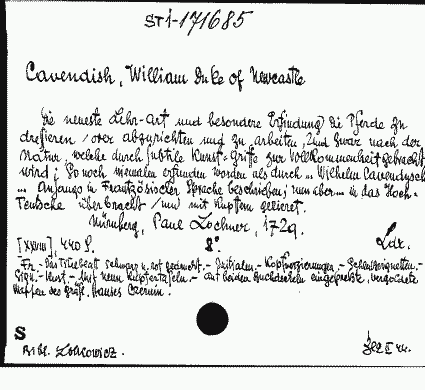 ST i-171685
Cavendish, William Duke of Newcastle
Die neueste Lehr-Art und besondere Erfindung Die Pferde zu
dressieren / oder abzurichten und zu arbeiten, und zwar nach der
Natur, welche durch subtile Kunst-Griffe zur Vollkommenheit gebracht
wird; So noch niemalen erfunden worden als durch ... Wilhelm Cavendysch
... Anfangs in Frantzösischer Sprache beschrieben; nun aber ... in das Hoch-
Teutsche überbracht / und mit Kupffern gezieret.
Nürnberg, Paul Lochner 1729.
[XXVIII], 440 S. 2°. Ldr.
Fr. - Das Titelblatt schwarz u. rot gedruckt. - Initialen. - Kopfverzierungen. -
Sign. - Kust. - Mit neun Kupfertafeln. - Auf beiden Buchdeckeln eingepresste, vergoldete
Wappen des gräfl. Hauses Czernin.
S
Bibl. Lobkowicz.